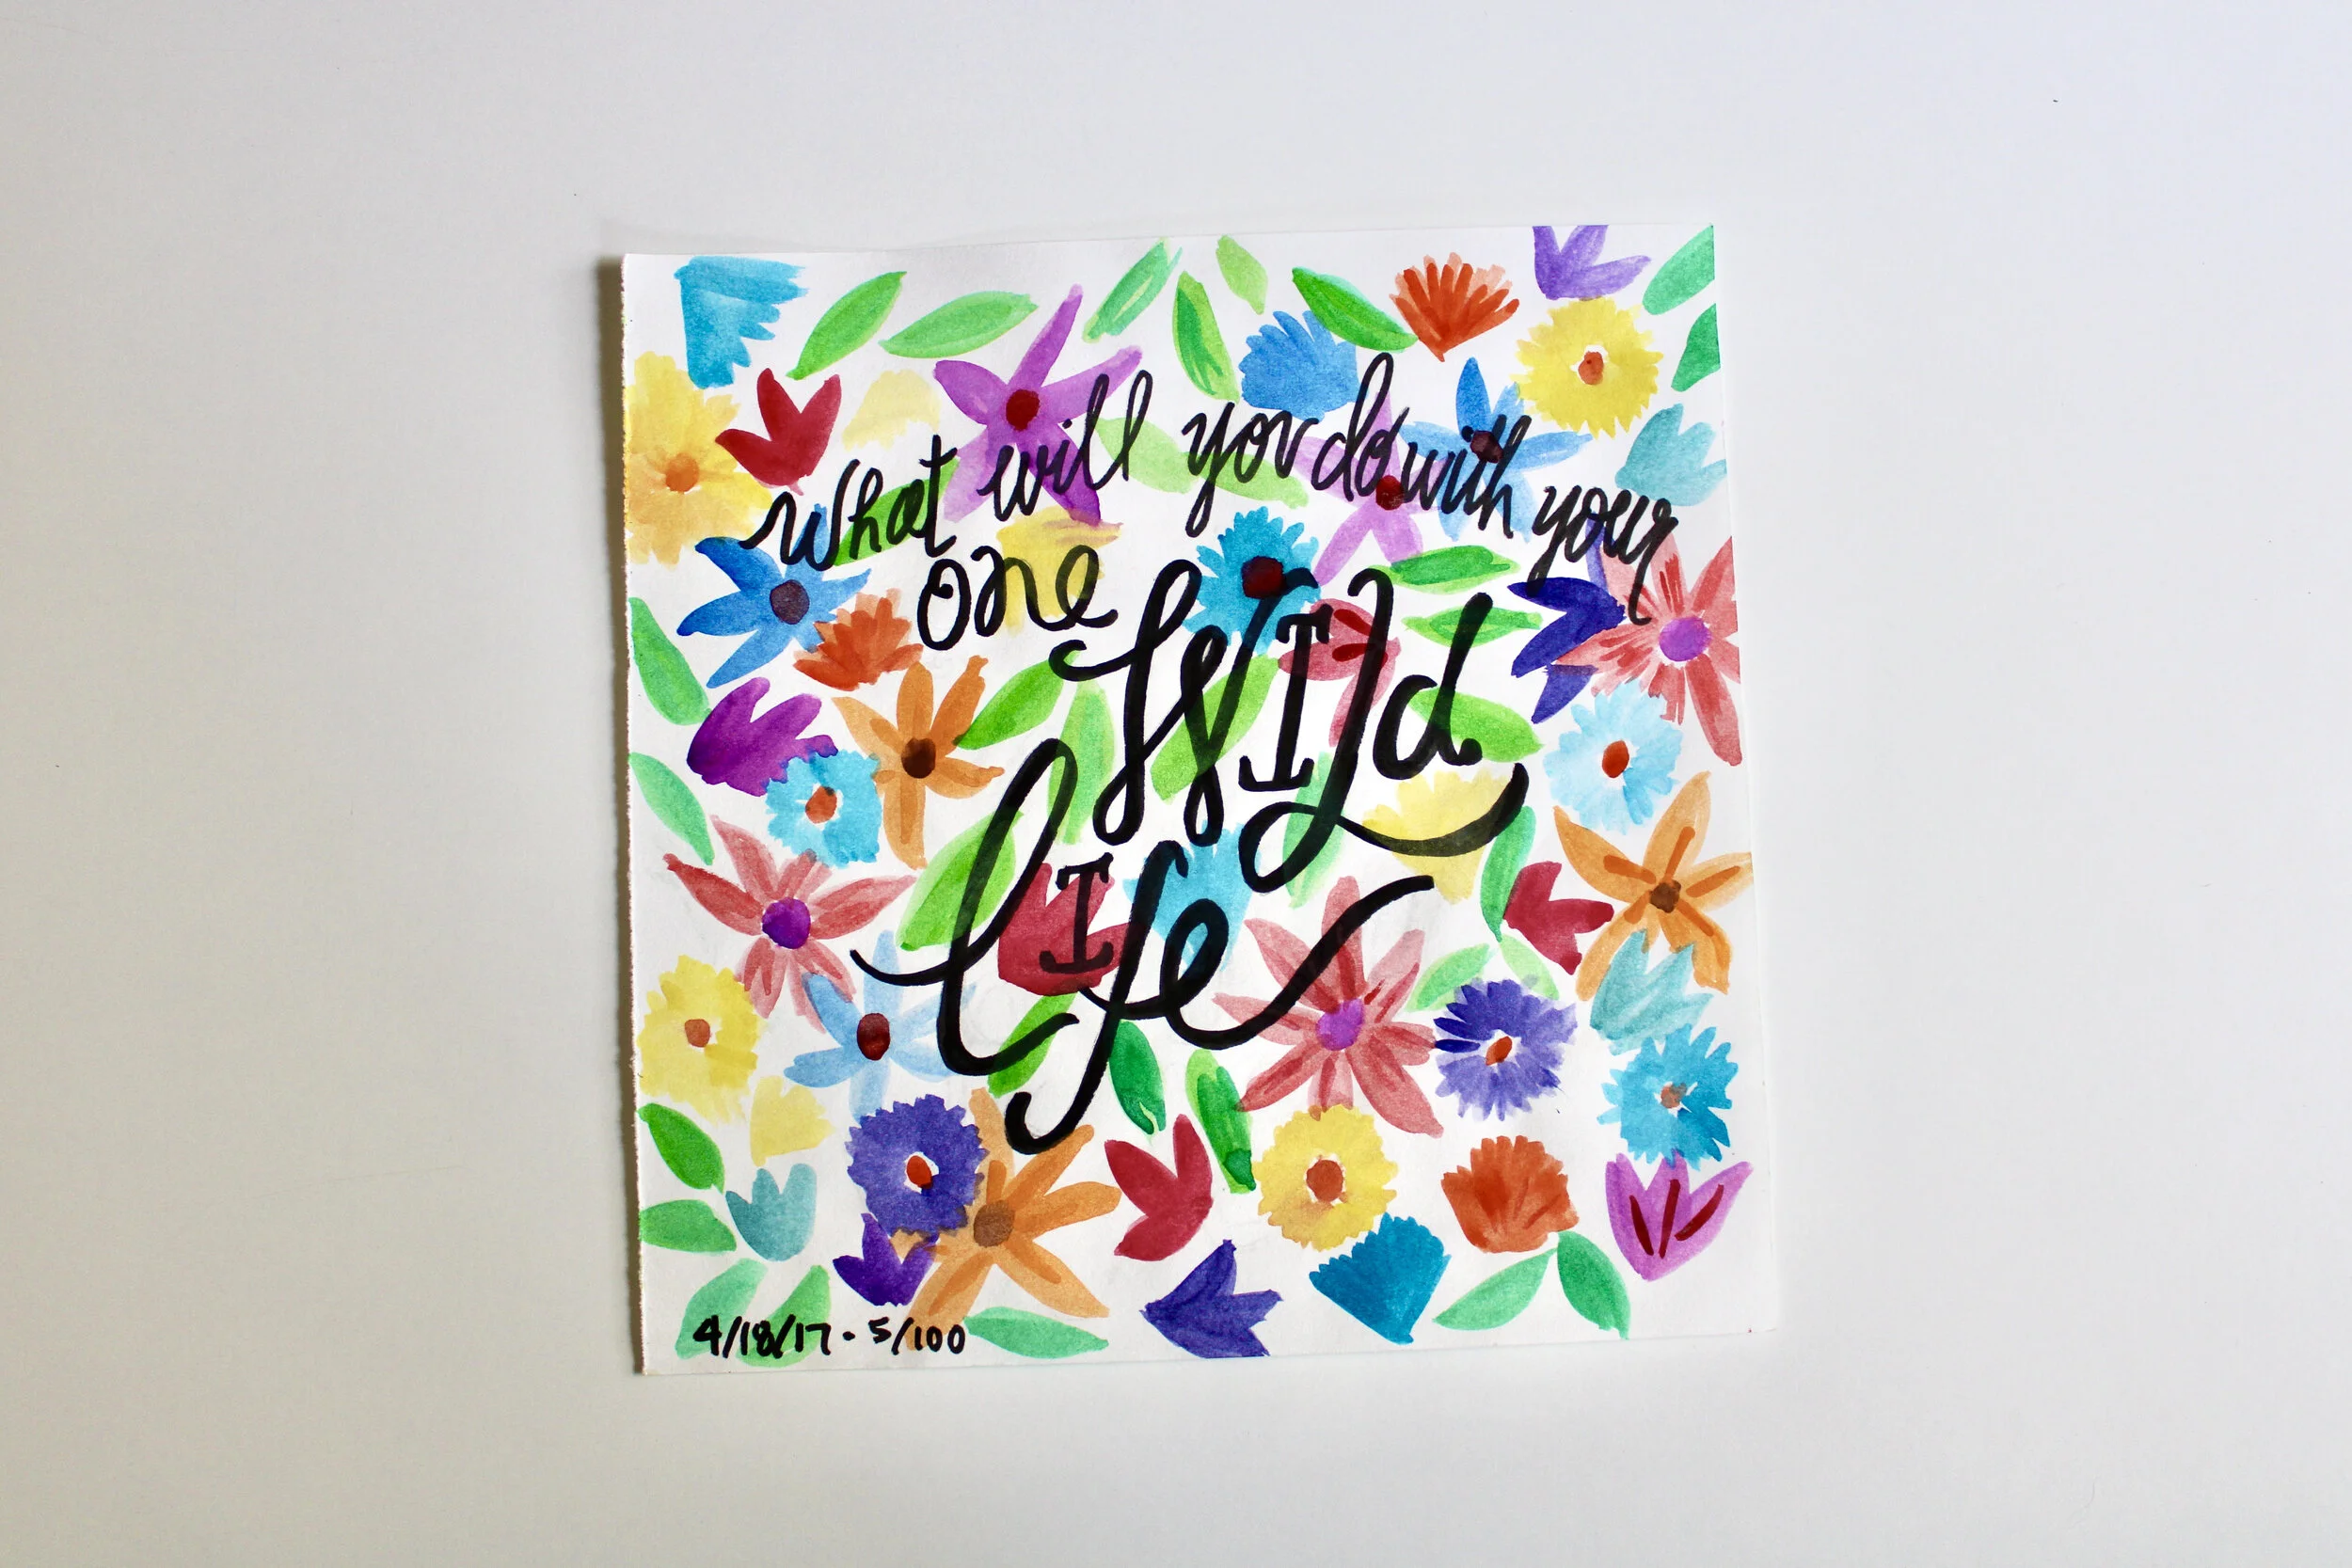 what will you do with your
one WIld
lIfe
4/18/17 . 5/100